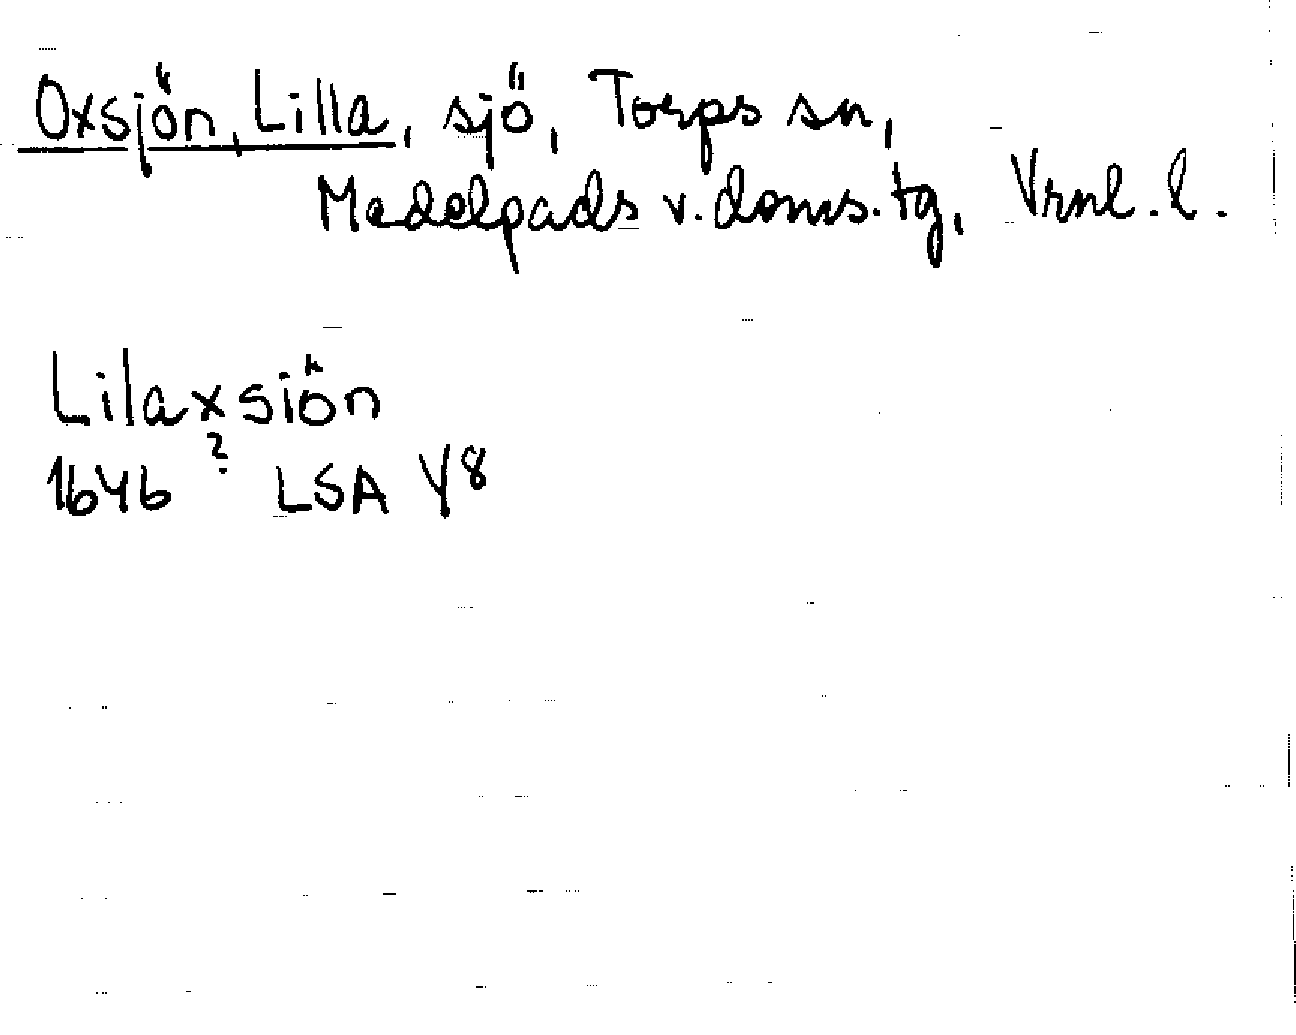 Oxsjön, Lilla, sjö, Torps sn,
Medelpads v. doms. tg, Vrnl. l.
Lilaxsiön
1646 ? LSA Y8